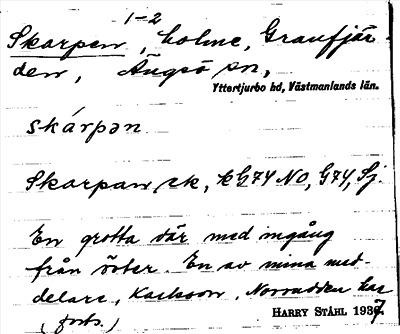 1-2
Skarpen, holme, Granfjär-
den, Ängsö sn,
Yttertjurbo hd, Västmanlands län.
skárpən
Skarpan, sk, G74 NO, G74, Sj.
En grotta där med ingång
från öster. En av mina med-
delare, Karlsson, Norrudden har
(forts.)
HARRY STÅHL 1937.